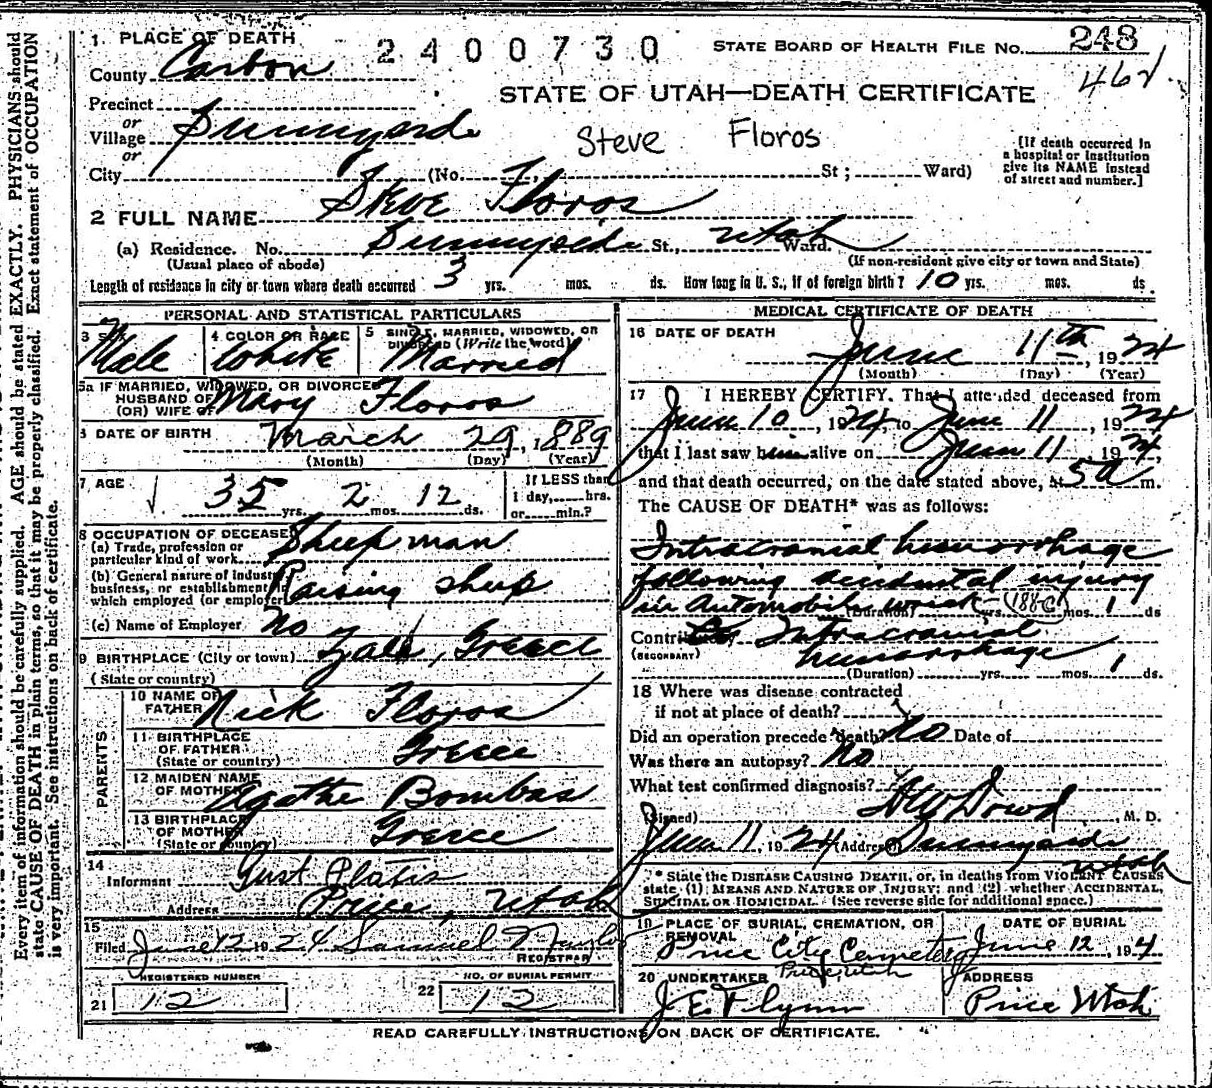 Every item of information should be carefully supplied. AGE should be stated EXACTLY. PHYSICIANS should
state CAUSE OF DEATH in plain terms, so that it may be properly classified. Exact statement of OCCUPATION
is very important. See instructions on back of certificate.
1. PLACE OF DEATH
2400730
STATE BOARD OF HEALTH FILE No. 248
County Carbon
462
STATE OF UTAH—DEATH CERTIFICATE
Precinct
or
Village Sunnyside
or
Steve Floros
[If death occurred in
a hospital or institution
give its NAME instead
of street and number.]
City (No. , St ; Ward)
2 FULL NAME Steve Floros
(a) Residence. No. Sunnyside St., Utah Ward.
(Usual place of abode) (If non-resident give city or town and State)
Length of residence in city or town where death occurred 3 yrs. mos. ds. How long in U. S., if of foreign birth? 10 yrs. mos. ds.
PERSONAL AND STATISTICAL PARTICULARS
3 SEX Male
4 COLOR OR RACE White
5 SINGLE, MARRIED, WIDOWED, OR
DIVORCED (Write the word) Married
5a IF MARRIED, WIDOWED, OR DIVORCED
HUSBAND OF
(OR) WIFE OF Mary Floros
6 DATE OF BIRTH March 29, 1889
(Month) (Day) (Year)
7 AGE 35 yrs. 2 mos. 12 ds.
If LESS than
1 day, hrs.
or min.?
8 OCCUPATION OF DECEASED
(a) Trade, profession or
particular kind of work Sheep man
(b) General nature of Industry
business, or establishment in
which employed (or employer) Raising sheep
(c) Name of Employer no
9 BIRTHPLACE (City or town) , Greece
(State or country)
PARENTS
10 NAME OF
FATHER Nick Floros
11 BIRTHPLACE
OF FATHER
(State or country) Greece
12 MAIDEN NAME
OF MOTHER Agathe Bombas
13 BIRTHPLACE
OF MOTHER
(State or country) Greece
14
Informant Gust Platis
Address Price, Utah
15
Filed June 12 1924 Samuel
REGISTRAR
REGISTERED NUMBER
21 12
NO. OF BURIAL PERMIT
22 12
MEDICAL CERTIFICATE OF DEATH
16 DATE OF DEATH
June 11th, 1924
(Month) (Day) (Year)
17 I HEREBY CERTIFY. That I attended deceased from
June 10, 1924 to June 11, 1924
that I last saw him alive on June 11 1924
and that death occurred, on the date stated above, at 5 a m.
The CAUSE OF DEATH* was as follows:
Intracranial hemorrhage
following accidental injury
in Automobil wreck (Duration) yrs. 188c mos. 1 ds
Contributory Intracranial
(SECONDARY) hemorrhage
(Duration) yrs. mos. 1 ds.
18 Where was disease contracted
if not at place of death?
Did an operation precede death? No Date of
Was there an autopsy? No
What test confirmed diagnosis?
(Signed) Dowd, M. D.
June 11, 1924 (Address) Sunnyside
Utah
* State the DISEASE CAUSING DEATH, or, in deaths from VIOLENT CAUSES
state (1) MEANS AND NATURE OF INJURY; and (2) whether ACCIDENTAL,
SUICIDAL OR HOMICIDAL. (See reverse side for additional space.)
19 PLACE OF BURIAL, CREMATION, OR
REMOVAL
Price City Cemetery
Price Utah
DATE OF BURIAL
June 12, 1924
20 UNDERTAKER
J E Flynn
ADDRESS
Price Utah
READ CAREFULLY INSTRUCTIONS ON BACK OF CERTIFICATE.